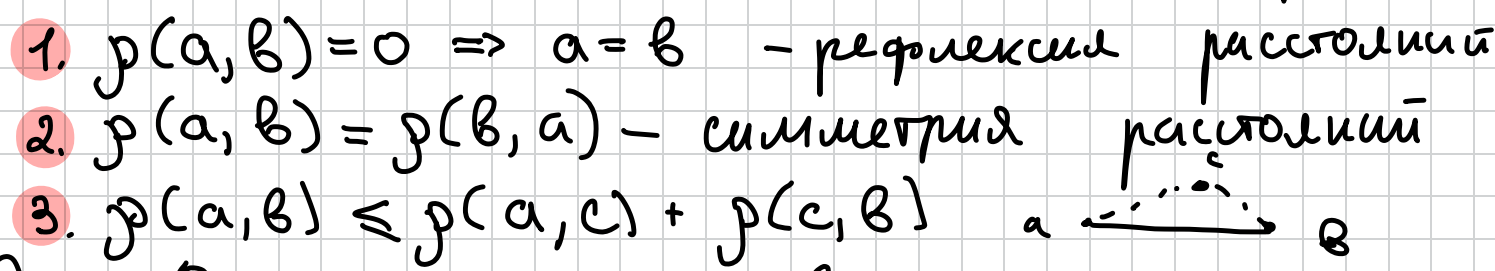 1. ρ(a, b) = 0 ⇒ a = b – рефлексия расстояний
2. ρ(a, b) = ρ(b, a) – симметрия расстояний
3. ρ(a, b) ≤ ρ(a, c) + ρ(c, b) a c b